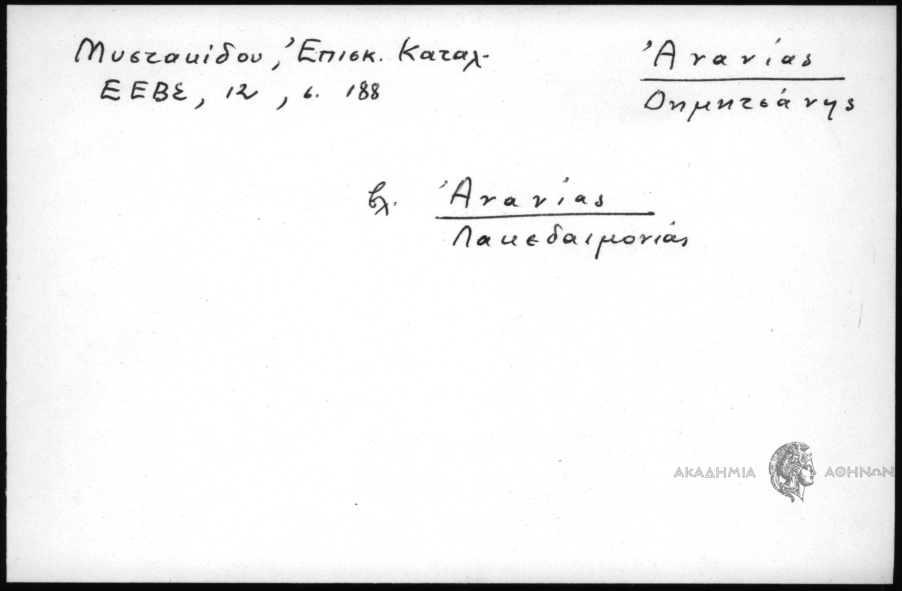 Μυστακίδου, Ἐπισκ. Καταλ.
ΕΕΒΣ, 12, σ. 188
Ἀνανίας
Δημητσάνης
βλ. Ἀνανίας
Λακεδαιμονίας
ΑΚΑΔΗΜΙΑ ΑΘΗΝΩΝ